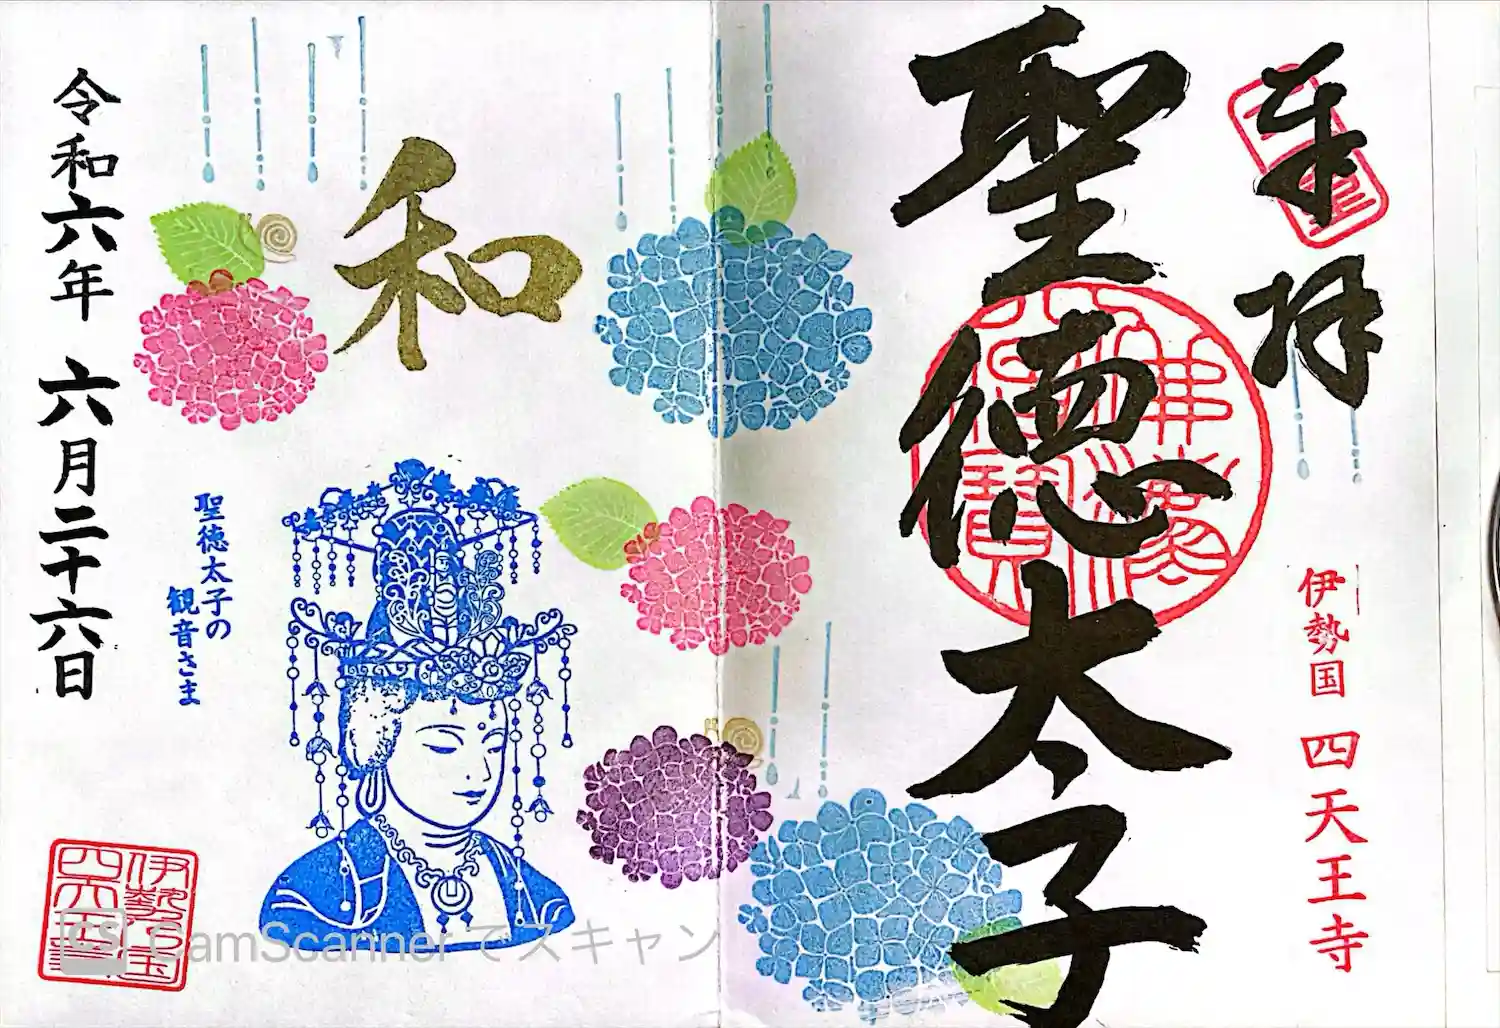 奉拝
聖徳太子
伊勢国 四天王寺
和
聖徳太子の
観音さま
令和六年 六月二十六日
伊勢之国
四天王寺
CS CamScannerでスキャン